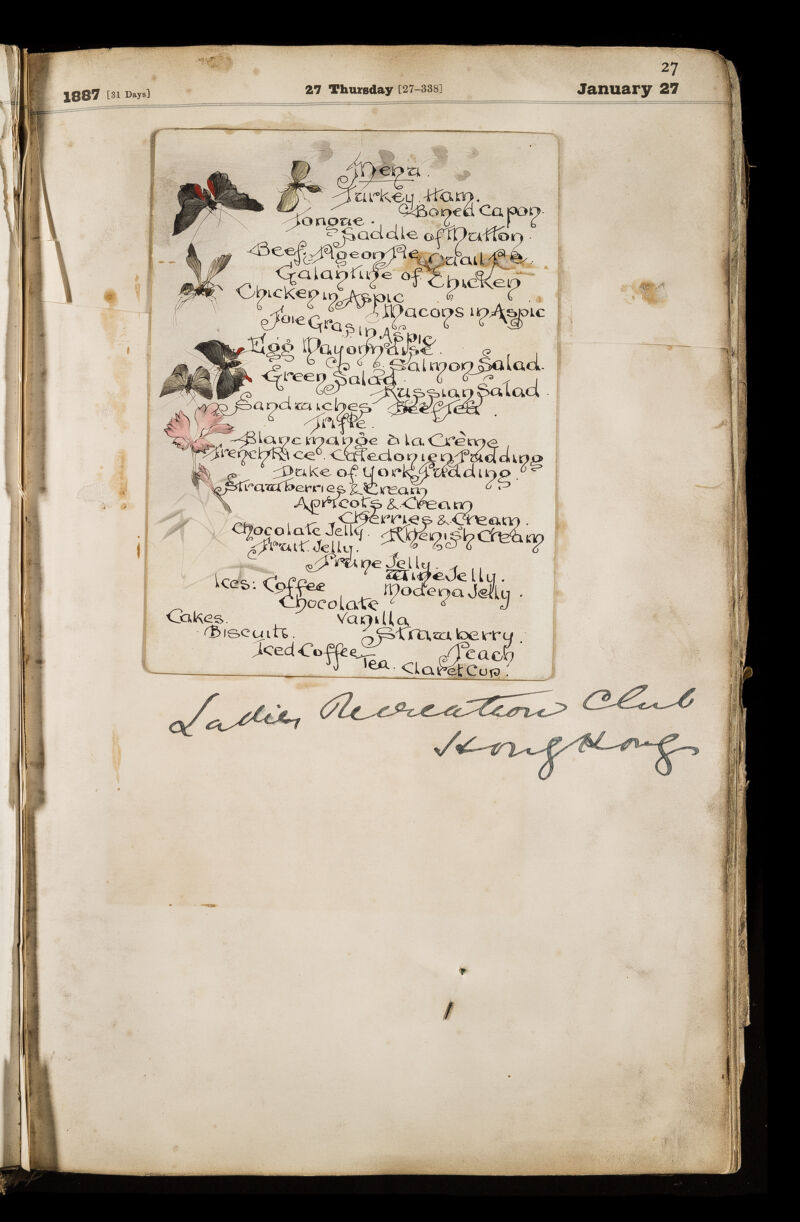 27
1887 [31 Days] 27 Thursday [27-338] January 27
Menu.
Turkey. Ham.
Tongue. Boned Capon.
Saddle of Mutton.
Beef. Pigeon Pie. Quail Pie.
Galantine of Chicken
Chicken in Aspic
Macons in Aspic
Foie Gras in Aspic
Egg Mayonnaise.
Salmon Salad.
Green Salad.
Russian Salad.
Sandwiches Beef Tea.
Trifle.
Blancmange à la Crème
French Rice. Caledonien Pudding
Duke of York Pudding.
Strawberries & Cream
Apricots & Cream
Cherries & Cream.
Chocolate Jelly. Rhenish Cream
Fruit Jelly.
Prune Jelly.
Wine Jelly.
Ices: Coffee Modena Jelly.
Chocolate
Cakes. Vanilla
Biscuits. Strawberry.
Iced Coffee Peach
Tea. Claret Cup.
Ladies Recreation Club
Hong Kong